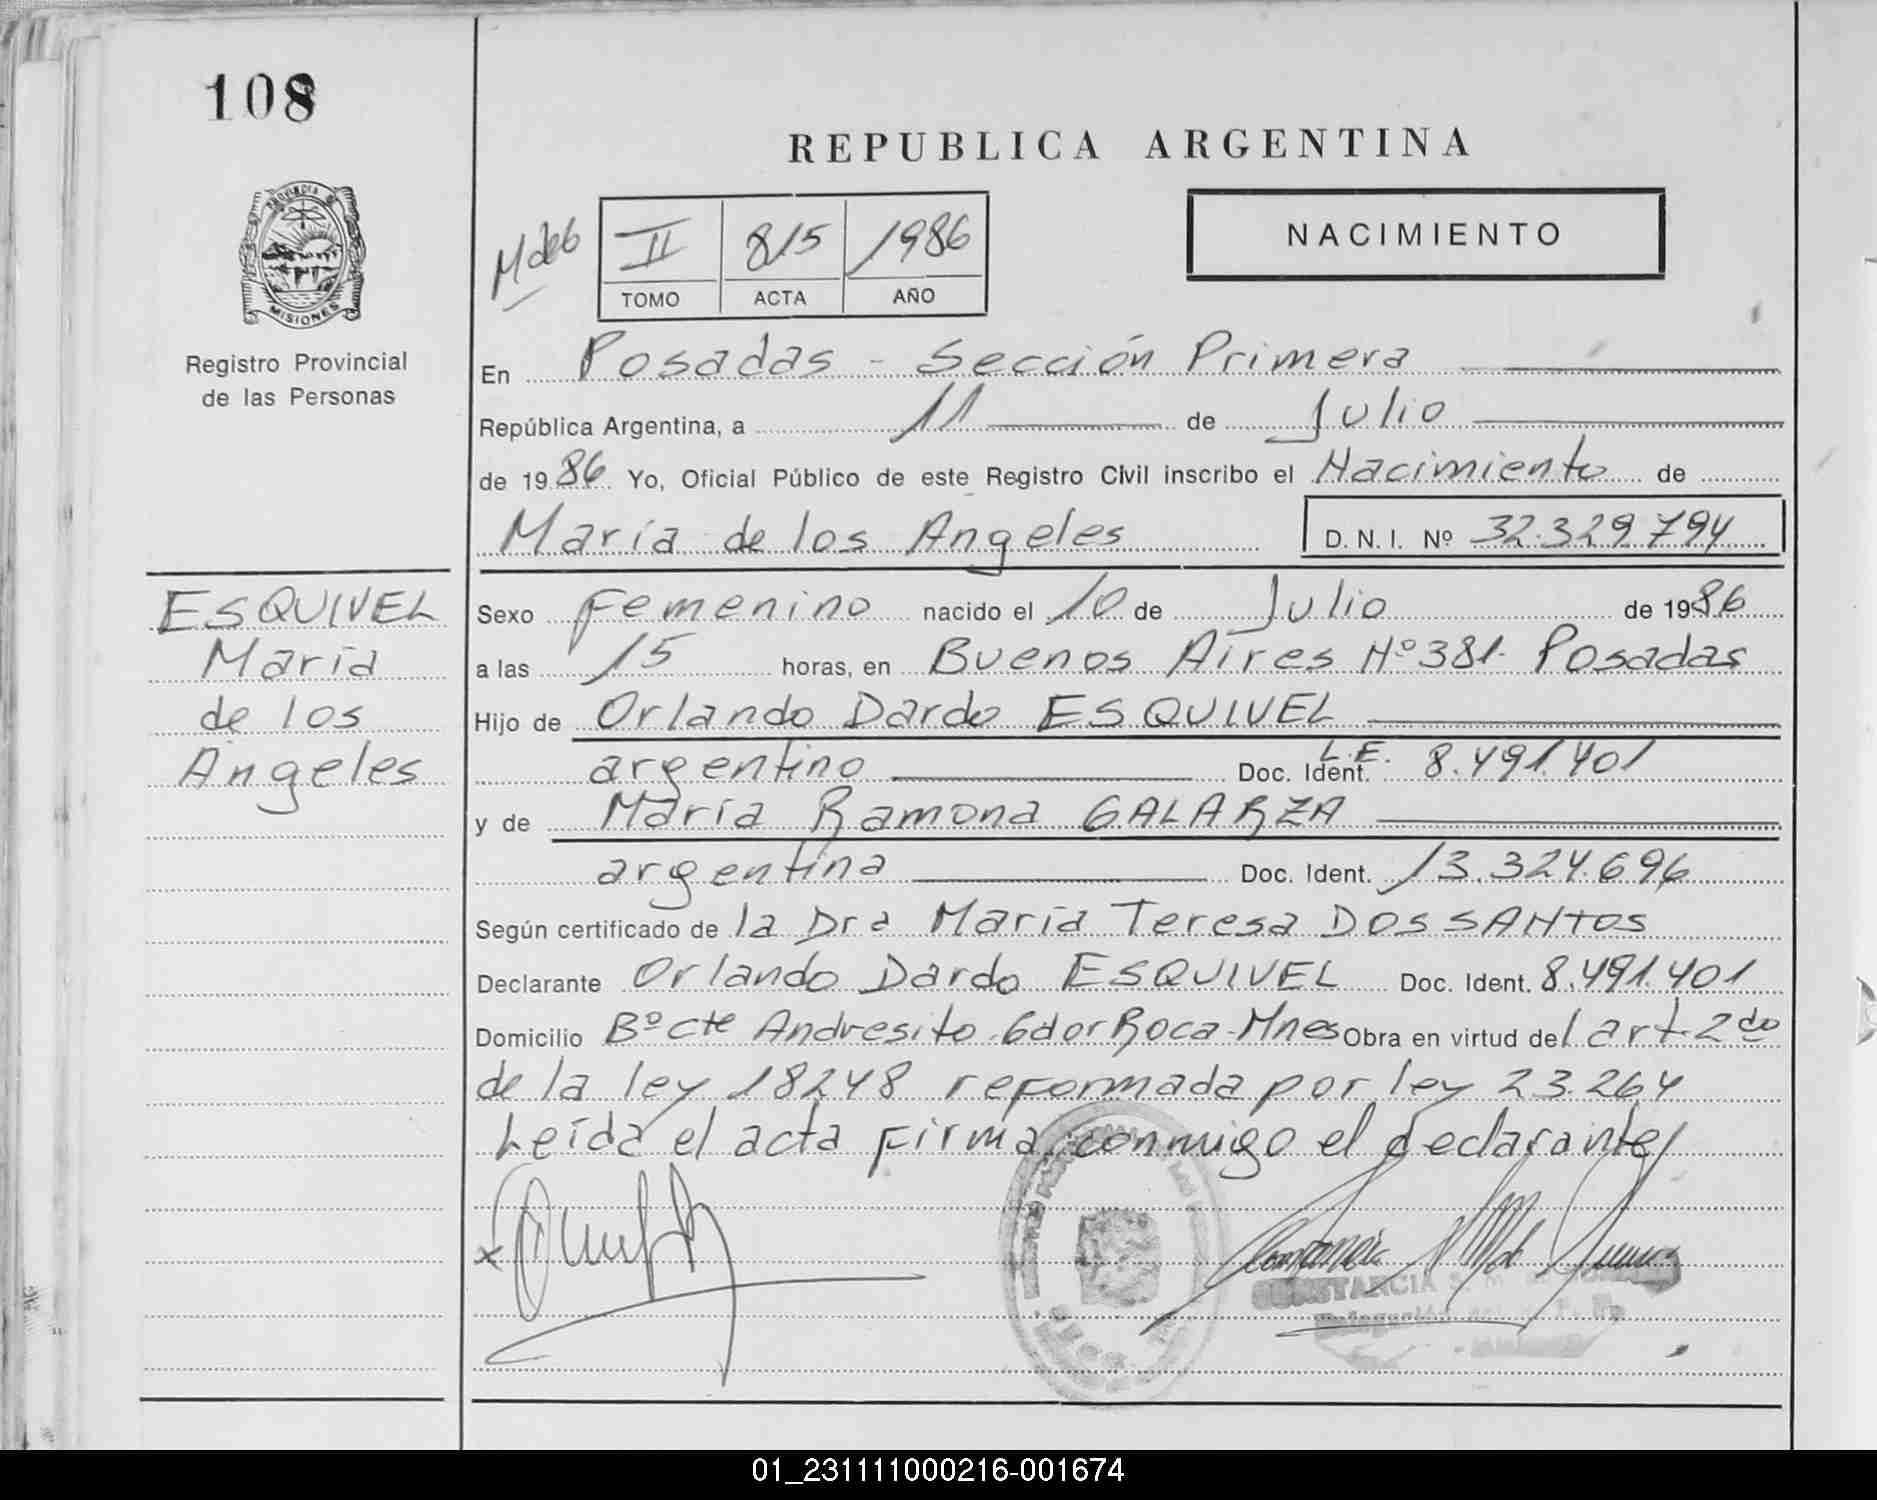 108
PROVINCIA DE
MISIONES
Registro Provincial
de las Personas
ESQUIVEL
María
de los
Angeles
REPUBLICA ARGENTINA
II 815 1986
TOMO ACTA AÑO
NACIMIENTO
En Posadas - Sección Primera
República Argentina, a 11 de Julio
de 1986 Yo, Oficial Público de este Registro Civil inscribo el Nacimiento de
María de los Angeles D. N. I. Nº 32.329.794
Sexo Femenino nacido el 10 de Julio de 1986
a las 15 horas, en Buenos Aires Nº 381. Posadas
Hijo de Orlando Dardo ESQUIVEL
argentino Doc. Ident. L.E. 8.491.401
y de María Ramona GALARZA
argentina Doc. Ident. 13.324.696
Según certificado de la Dra María Teresa DOS SANTOS
Declarante Orlando Dardo ESQUIVEL Doc. Ident. 8.491.401
Domicilio Bº Cte Andresito. Gdor Roca-Mnes Obra en virtud del art. 2do
de la ley 18248 reformada por ley 23.264
Leída el acta firma conmigo el declarante
CONSTANCIA
01_231111000216-001674